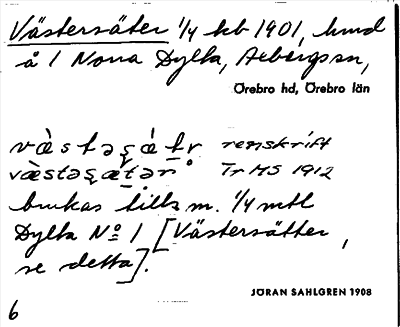 Västersäter 1/4 kb 1901, lund
å 1 Norra Dylta, Axbergssn,
Örebro hd, Örebro län
renskrift
Tr MS 1912
brukas tills m. 1/4 mtl
Dylta No 1 [Västersätter,
se detta].
JÖRAN SAHLGREN 1908
6